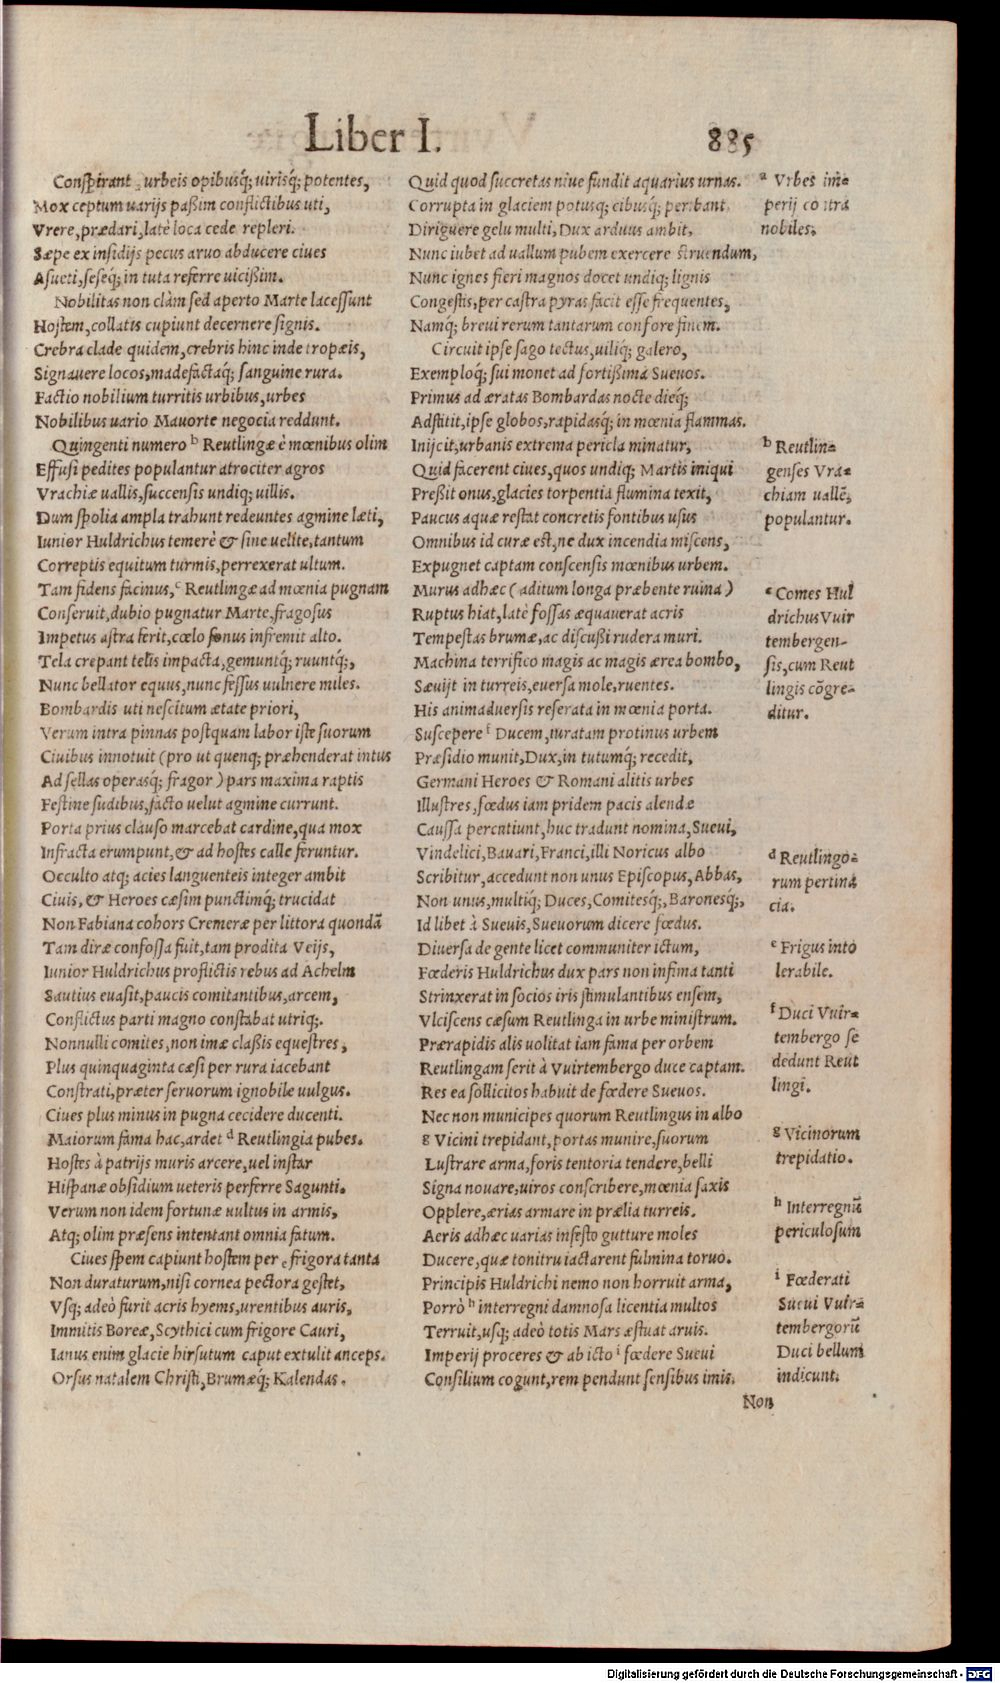 Liber I. 885
Conspirant urbeis opibusq́; uirisq́; potentes,
Mox ceptum uarijs paßim conflictibus uti,
Vrere, prædari, latè loca cede repleri.
Sæpe ex insidijs pecus aruo abducere ciues
Asueti, seseq́; in tuta referre uicißim.
Nobilitas non clàm sed aperto Marte lacessunt
Hostem, collatis cupiunt decernere signis.
Crebra clade quidem, crebris hinc inde tropæis,
Signauere locos, madefactaq́; sanguine rura.
Factio nobilium turritis urbibus, urbes
Nobilibus uario Mauorte negocia reddunt.
Quingenti numero ᵇ Reutlingæ è mœnibus olim
Effusi pedites populantur atrociter agros
Vrachiæ uallis, succensis undiq; uillis.
Dum spolia ampla trahunt redeuntes agmine læti,
Iunior Huldrichus temerè & sine uelite, tantum
Correptis equitum turmis, perrexerat ultum.
Tam fidens facinus, ᶜ Reutlingæ ad mœnia pugnam
Conseruit, dubio pugnatur Marte, fragosus
Impetus astra ferit, cœlo sonus infremit alto.
Tela crepant telis impacta, gemuntq́; ruuntq́;,
Nunc bellator equus, nunc fessus uulnere miles.
Bombardis uti nescitum ætate priori,
Verum intra pinnas postquam labor iste suorum
Ciuibus innotuit (pro ut quenq; præhenderat intus
Ad sellas operasq́; fragor) pars maxima raptis
Festine sudibus, facto uelut agmine currunt.
Porta prius clauso marcebat cardine, qua mox
Infracta erumpunt, & ad hostes calle feruntur.
Occulto atq; acies languenteis integer ambit
Ciuis, & Heroes cæsim punctimq́; trucidat
Non Fabiana cohors Cremeræ per littora quondā
Tam diræ confossa fuit, tam prodita Veijs,
Iunior Huldrichus proflictis rebus ad Achelm
Sautius euasit, paucis comitantibus, arcem,
Conflictus parti magno constabat utriq;.
Nonnulli comites, non imæ claßis equestres,
Plus quinquaginta cæsi per rura iacebant
Constrati, præter seruorum ignobile uulgus.
Ciues plus minus in pugna cecidere ducenti.
Maiorum fama hac, ardet ᵈ Reutlingia pubes.
Hostes à patrijs muris arcere, uel instar
Hispanæ obsidium ueteris perferre Sagunti.
Verum non idem fortunæ uultus in armis,
Atq; olim præsens intentant omnia fatum.
Ciues spem capiunt hostem per ₑ frigora tanta
Non duraturum, nisi cornea pectora gestet,
Vsq; adeò furit acris hyems, urentibus auris,
Immitis Boreæ, Scythici cum frigore Cauri,
Ianus enim glacie hirsutum caput extulit anceps.
Orsus natalem Christi, Brumæq́; Kalendas.
Quid quod succretas niue fundit aquarius urnas.
Corrupta in glaciem potusq; cibusq́; peribant
Diriguere gelu multi, Dux arduus ambit,
Nunc iubet ad uallum pubem exercere struendum,
Nunc ignes fieri magnos docet undiq; lignis
Congestis, per castra pyras facit esse frequentes,
Namq́; breui rerum tantarum confore finem.
Circuit ipse sago tectus, uiliq́; galero,
Exemploq́; sui monet ad fortißima Sueuos.
Primus ad æratas Bombardas nocte dieq́;
Adstitit, ipse globos, rapidasq́; in mœnia flammas.
Inijcit, urbanis extrema pericla minatur,
Quid facerent ciues, quos undiq; Martis iniqui
Preßit onus, glacies torpentia flumina texit,
Paucus aquæ restat concretis fontibus usus
Omnibus id curæ est, ne dux incendia miscens,
Expugnet captam conscensis mœnibus urbem.
Murus adhæc (aditum longa præbente ruina)
Ruptus hiat, latè fossas æquauerat acris
Tempestas brumæ, ac discußi rudera muri.
Machina terrifico magis ac magis ærea bombo,
Sæuijt in turreis, euersa mole, ruentes.
His animaduersis reserata in mœnia porta.
Suscepere ᶠ Ducem, iuratam protinus urbem
Præsidio munit, Dux, in tutumq́; recedit,
Germani Heroes & Romani alitis urbes
Illustres, fœdus iam pridem pacis alendæ
Caussa percutiunt, huc tradunt nomina, Sueui,
Vindelici, Bauari, Franci, illi Noricus albo
Scribitur, accedunt non unus Episcopus, Abbas,
Non unus, multiq́; Duces, Comitesq́;, Baronesq́;,
Id libet à Sueuis, Sueuorum dicere fœdus.
Diuersa de gente licet communiter ictum,
Fœderis Huldrichus dux pars non infima tanti
Strinxerat in socios iris stimulantibus ensem,
Vlciscens cæsum Reutlinga in urbe ministrum.
Prærapidis alis uolitat iam fama per orbem
Reutlingam serit à Vuirtembergo duce captam.
Res ea sollicitos habuit de fœdere Sueuos.
Nec non municipes quorum Reutlingus in albo
ᵍ Vicini trepidant, portas munire, suorum
Lustrare arma, foris tentoria tendere, belli
Signa nouare, uiros conscribere, mœnia saxis
Opplere, ærias armare in prælia turreis.
Aeris adhæc uarias infesto gutture moles
Ducere, quæ tonitru iactarent fulmina toruo.
Principis Huldrichi nemo non horruit arma,
Porrò ʰ interregni damnosa licentia multos
Terruit, usq; adeò totis Mars æstuat aruis.
Imperij proceres & ab icto ⁱ fœdere Sueui
Consilium cogunt, rem pendunt sensibus imis.
Non
ᵃ Vrbes im=
perij cōtra
nobiles.
ᵇ Reutlin=
genses Vra=
chiam uallē,
populantur.
ᶜ Comes Hul
drichus Vuir
tembergen-
sis, cum Reut
lingis cōgre=
ditur.
ᵈ Reutlingo=
rum pertina
cia.
ᵉ Frigus into
lerabile.
ᶠ Duci Vuir=
tembergo se
dedunt Reut
lingi.
ᵍ Vicinorum
trepidatio.
ʰ Interregnū
periculosum
ⁱ Fœderati
Sueui Vuir=
tembergorū
Duci bellum
indicunt.
Digitalisierung gefördert durch die Deutsche Forschungsgemeinschaft - DFG